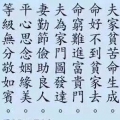 家貧苦命生成
命好不到貧家去
命窮難進富貴門
夫為家門圖發達
妻勤節儉助良人
平心思念姻緣美
等級無分敬如賓